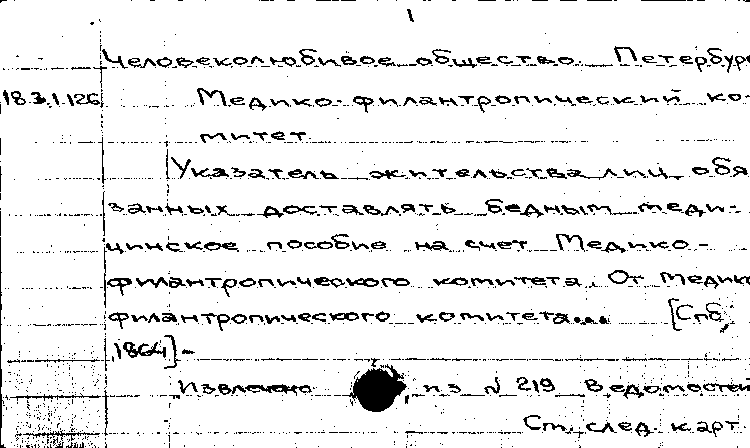 1
Человеколюбивое общество. Петербург
18.3.1.126 Медико-филантропический ко-
митет
Указатель жительства лиц, обя
занных доставлять бедным меди-
цинское пособие на счет Медико-
филантропического комитета. От Медико
филантропического комитета... [Спб,
1864] -
Извлечено из № 219 Ведомостей
См. след. карт.